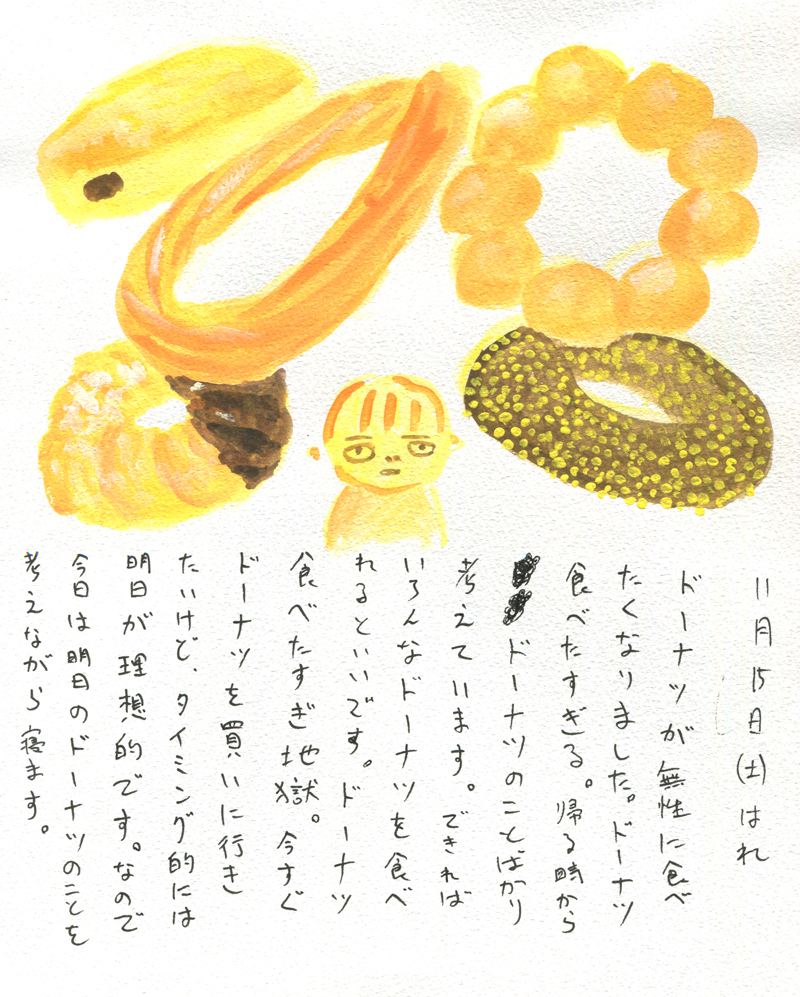 11月15日(土)はれ
ドーナツが無性に食べ
たくなりました。ドーナツ
食べたすぎる。帰る時から
ドーナツのことばかり
考えています。できれば
いろんなドーナツを食べ
れるといいです。ドーナツ
食べたすぎ地獄。今すぐ
ドーナツを買いに行き
たいけど、タイミング的には
明日が理想的です。なので
今日は明日のドーナツのことを
考えながら寝ます。